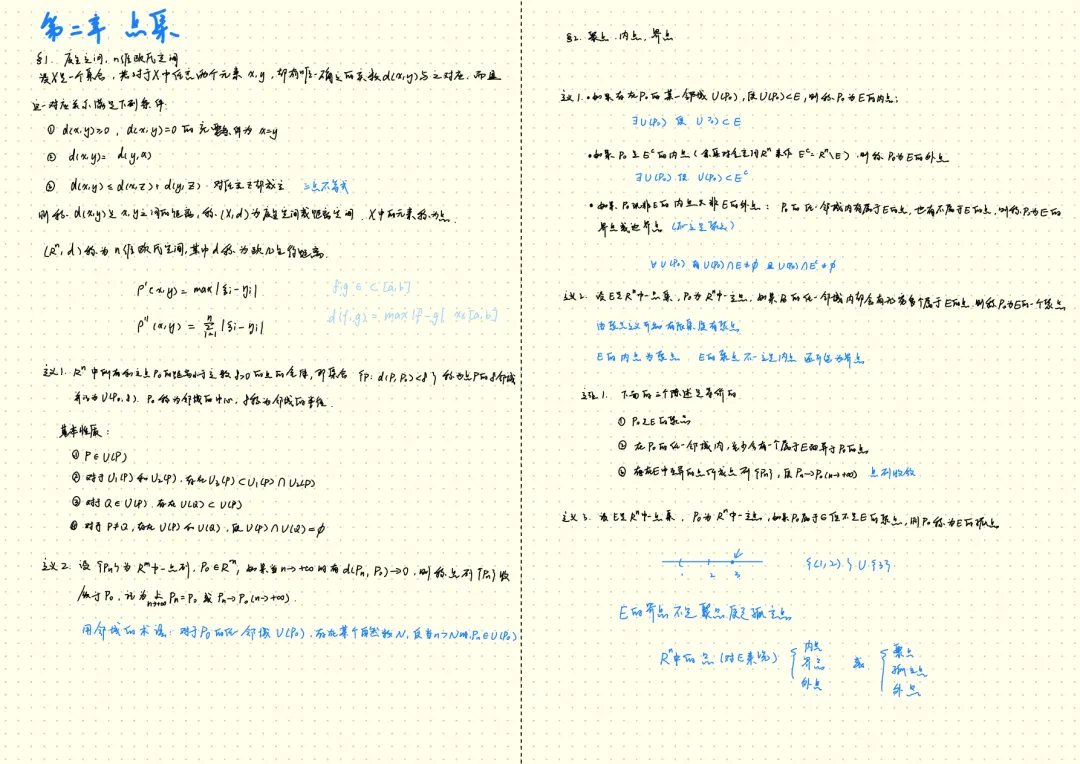 第二章 点集
§1. 度量空间, n维欧氏空间
设X是一个集合, 若对于X中任意两个元素 x,y, 都有唯一确定的实数d(x,y)与之对应, 而且
这一对应关系满足下列条件:
① d(x,y)≥0, d(x,y)=0 的充要条件为 x=y
② d(x,y)= d(y,x)
③ d(x,y) ≤ d(x,z)+d(y,z) 对任意z都成立 三点不等式
则称 d(x,y)是 x,y之间的距离, 称(X,d)为度量空间或距离空间. X中的元素称为点
(Rⁿ, d) 称为n维欧氏空间, 其中d称为欧几里得距离.
ρ'(x,y) = max|ξi-ηi|
f,g ∈ C[a,b]
ρ''(x,y) = Σ |ξi-ηi|
d(f,g) = max|f-g| x∈[a,b]
定义1. Rⁿ中所有和定点P₀的距离小于定数 δ>0的点的全体, 即集合 {P: d(P,P₀)<δ} 称为点P₀的δ邻域
并记为U(P₀,δ). P₀称为邻域的中心, δ称为邻域的半径.
基本性质:
① P∈U(P)
② 对于U₁(P)和U₂(P), 存在U₃(P)⊂U₁(P)∩U₂(P)
③ 对于Q∈U(P). 存在U(Q)⊂U(P)
④ 对于P≠Q, 存在U(P)和U(Q), 使U(P)∩U(Q)=∅
定义2. 设{Pn}为Rᵐ中一点列, P₀∈Rᵐ, 如果当n→+∞时有d(Pn,P₀)→0, 则称点列{Pn}收
敛于P₀, 记为 Pn=P₀ 或 Pn→P₀(n→+∞).
用邻域的术语: 对于P₀的任一邻域U(P₀), 存在某个自然数N, 使当n>N时,Pn∈U(P₀)
§2. 聚点, 内点, 界点
定义1. • 如果存在P₀的某一邻域U(P₀), 使U(P₀)⊂E, 则称P₀为E的内点;
∃U(P₀) 使 U(P₀)⊂E
• 如果P₀是Eᶜ的内点 (余集对全空间Rⁿ来作 Eᶜ=Rⁿ\E) 则称P₀为E的外点
∃U(P₀) 使 U(P₀)⊂Eᶜ
• 如果P₀既非E的内点又非E的外点: P₀的任一邻域内有属于E的点, 也有不属于E的点, 则称P₀为E的
界点或边界点 (不一定是聚点)
∀U(P₀) 有 U(P₀)∩E≠∅ 且 U(P₀)∩Eᶜ≠∅
定义2. 设E是Rⁿ中一点集, P₀为Rⁿ中一定点, 如果P₀的任一邻域内都含有无穷多个属于E的点, 则称P₀为E的一个聚点
由聚点定义可知有限集没有聚点
E的内点为聚点 E的聚点不一定是内点 还可能为界点
定理1. 下面的三个陈述是等价的
① P₀是E的聚点
② 在P₀的任一邻域内, 至少含有一个属于E而异于P₀的点
③ 存在E中互异的点所成点列{Pn}, 使Pn→P₀(n→+∞) 点列收敛
定义3. 设E是Rⁿ中一点集, P₀为Rⁿ中一定点, 如果P₀属于E但不是E的聚点, 则P₀称为E的孤立点
1 2 3
{(1,2)}∪{3}
E的界点不是聚点便是孤立点
Rⁿ中的点(对E来说)
内点
界点
外点
或
聚点
孤立点
外点